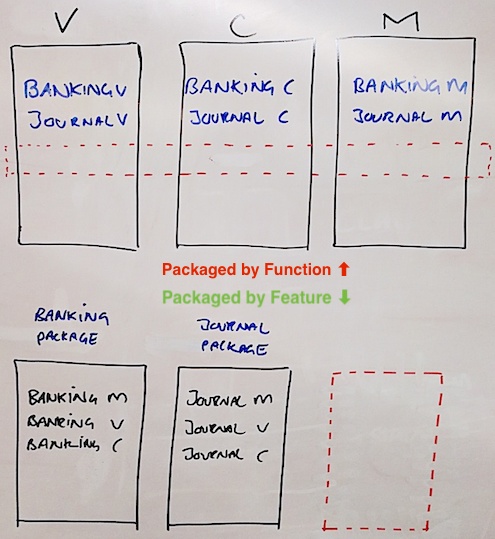 V C M
BANKING V
JOURNAL V
BANKING C
JOURNAL C
BANKING M
JOURNAL M
Packaged by Function ⬆
Packaged by Feature ⬇
BANKING
PACKAGE
JOURNAL
PACKAGE
BANKING M
BANKING V
BANKING C
JOURNAL M
JOURNAL V
JOURNAL C